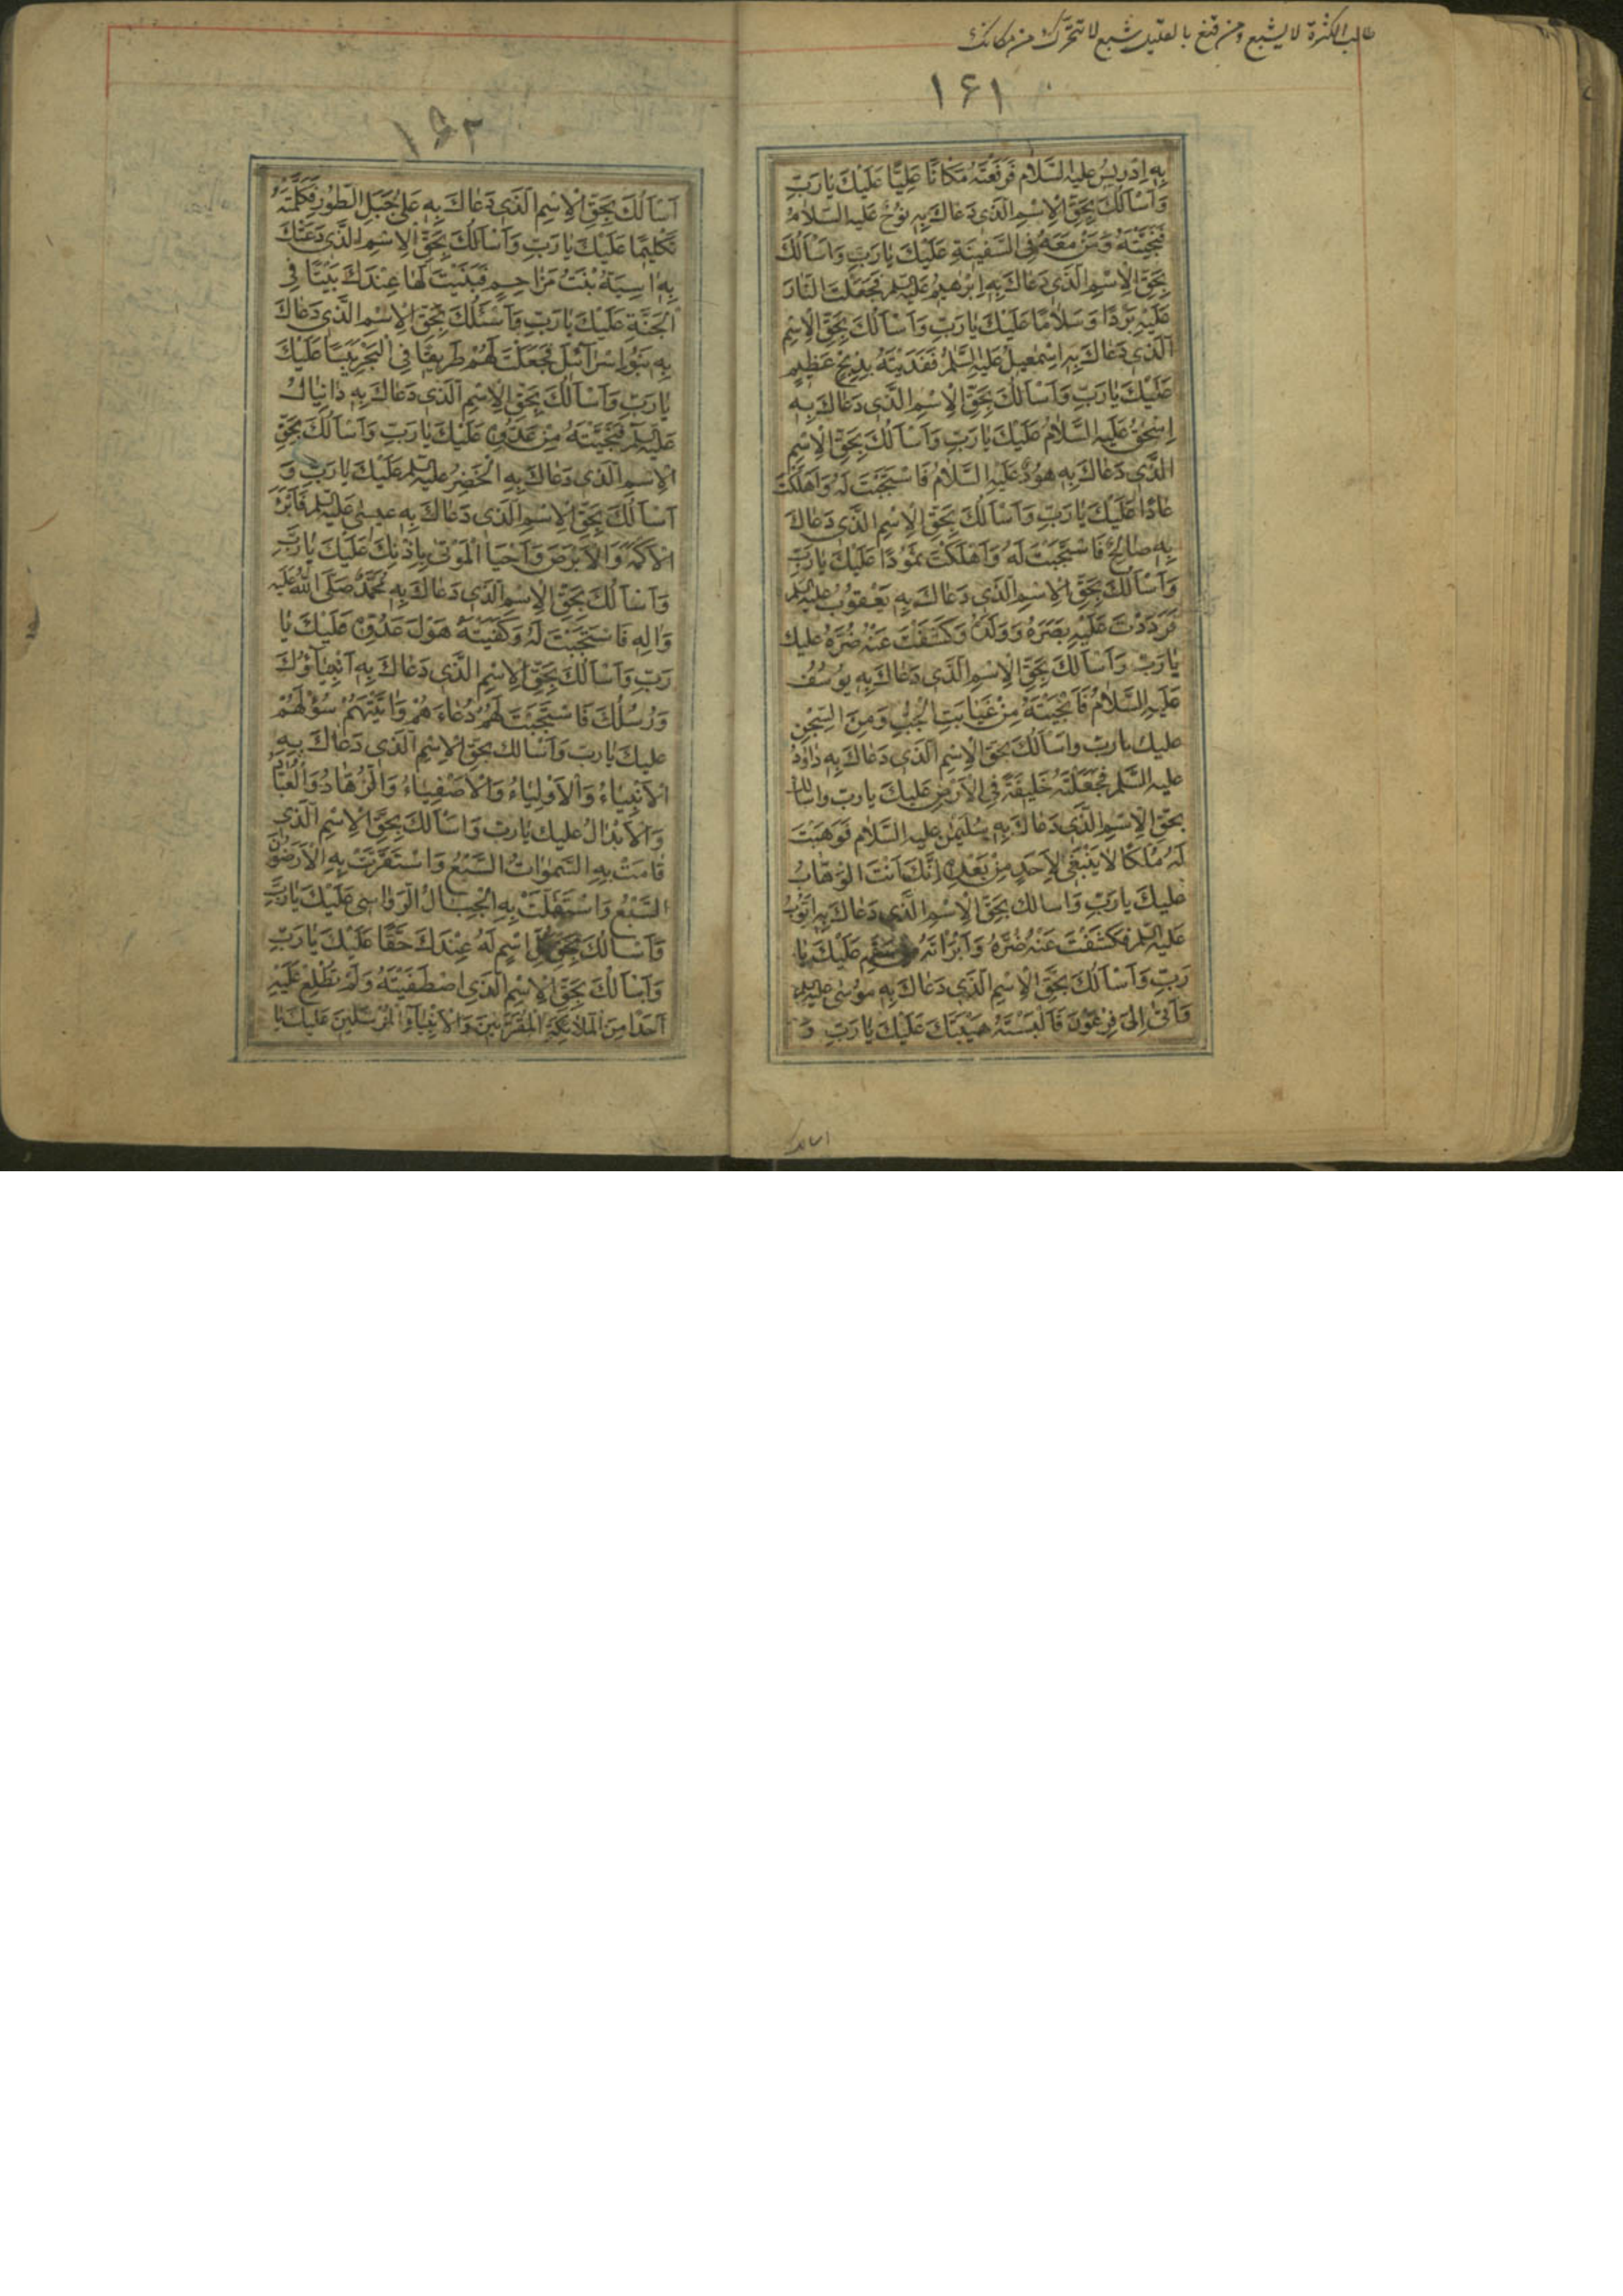 طالب الكثرة لا يشبع ومن قنع بالقليل شبع لا تتحرك من مكانك
١۶١
بِهِ اِدْرِيسُ عليه السَّلام فَرَفَعْتَهُ مَكَانًا عَلِيًّا عَلَيْكَ يَارَبِّ
وَاَسْاَلُكَ بِحَقِّ الْاِسْمِ الَّذِى دَعَاكَ بِهِ نُوحٌ عليه السلامُ
فَنَجَّيْتَهُ وَمَنْ مَعَهُ فِى السَّفِينَةِ عَلَيْكَ يَارَبِّ وَاَسْاَلُكَ
بِحَقِّ الْاِسْمِ الَّذِى دَعَاكَ بِهِ اِبْرٰهِيمُ عليه السلم فَجَعَلْتَ النَّارَ
عَلَيْهِ بَرْدًا وَسَلَامًا عَلَيْكَ يَارَبِّ وَاَسْاَلُكَ بِحَقِّ الْاِسْمِ
الَّذِى دَعَاكَ بِهِ اِسْمٰعِيلُ عَلَيْهِ السَّلمُ فَفَدَيْتَهُ بِذِبْحٍ عَظِيمٍ
عَلَيْكَ يَارَبِّ وَاَسْاَلُكَ بِحَقِّ الْاِسْمِ الَّذِى دَعَاكَ بِهِ
اِسْحٰقُ عَلَيْهِ السَّلَامُ عَلَيْكَ يَارَبِّ وَاَسْاَلُكَ بِحَقِّ الْاِسْمِ
الَّذِى دَعَاكَ بِهِ هُودٌ عَلَيْهِ السَّلَامُ فَاسْتَجَبْتَ لَهُ وَاَهْلَكْتَ
عَادًا عَلَيْكَ يَارَبِّ وَاَسْاَلُكَ بِحَقِّ الْاِسْمِ الَّذِى دَعَاكَ
بِهِ صَالِحٌ فَاسْتَجَبْتَ لَهُ وَاَهْلَكْتَ ثَمُودًا عَلَيْكَ يَارَبِّ
وَاَسْاَلُكَ بِحَقِّ الْاِسْمِ الَّذِى دَعَاكَ بِهِ يَعْقُوبُ عليه السلم
فَرَدَدْتَ عَلَيْهِ بَصَرَهُ وَوَلَدَهُ وَكَشَفْتَ عَنْهُ ضُرَّهُ عليك
يَارَبِّ وَاَسْاَلُكَ بِحَقِّ الْاِسْمِ الَّذِى دَعَاكَ بِهِ يُوسُفُ
عَلَيْهِ السَّلَامُ فَاَنْجَيْتَهُ مِنْ غَيَابَتِ الْجُبِّ وَمِنَ السِّجْنِ
عليك يارب وَاَسْاَلُكَ بحَقِّ الْاِسْمِ الَّذِى دَعَاكَ بِهِ دَاوُدُ
عليه السَّلم فَجَعَلْتَهُ خَلِيفَةً فِى الْاَرْضِ عليك يارب واسالك
بحَقِّ الْاِسْمِ الَّذِى دَعَاكَ بِهِ سُلَيْمٰنُ عليه السَّلام فَوَهَبْتَ
لَهُ مُلْكًا لَا يَنْبَغِى لِاَحَدٍ مِنْ بَعْدِهِ اِنَّكَ اَنْتَ الْوَهَّابُ
عليكَ يارَبِّ وَاسالك بحَقِّ الْاِسْمِ الَّذِى دَعَاكَ بِهِ اَيُّوبُ
عليه السلم فَكَشَفْتَ عَنْهُ ضُرَّهُ وَاَبْرَاْتَهُ عَلَيْكَ يَا
رَبِّ وَاَسْاَلُكَ بحَقِّ الْاِسْمِ الَّذِى دَعَاكَ بِهِ مُوسٰى عليه السلم
وَاَتٰى اِلٰى فِرْعَوْنَ فَاَلْبَسْتَهُ هَيْبَتَكَ عَلَيْكَ يَارَبِّ وَ
اسالك
١۶٢
اَسْاَلُكَ بِحَقِّ الْاِسْمِ الَّذِى دَعَاكَ بِهِ عَلٰى جَبَلِ الطُّورِ فَكَلَّمْتَهُ
تَكْلِيمًا عَلَيْكَ يَارَبِّ وَاَسْاَلُكَ بِحَقِّ الْاِسْمِ الَّذِى دَعَتْكَ
بِهِ اٰسِيَةُ بْنَتُ مُزَاحِمٍ فَبَنَيْتَ لَهَا عِنْدَكَ بَيْتًا فِى
الْجَنَّةِ عَلَيْكَ يَارَبِّ وَاَسْئَلُكَ بِحَقِّ الْاِسْمِ الَّذِى دَعَاكَ
بِهِ بَنُو اِسْرَائِيلَ فَجَعَلْتَ لَهُمْ طَرِيقًا فِى الْبَحْرِ يَبَسًا عَلَيْكَ
يَارَبِّ وَاَسْاَلُكَ بِحَقِّ الْاِسْمِ الَّذِى دَعَاكَ بِهِ دَانِيَالُ
عليه السلم فَنَجَّيْتَهُ مِنْ عَدُوِّهِ عَلَيْكَ يَارَبِّ وَاَسْاَلُكَ بِحَقِّ
الْاِسْمِ الَّذِى دَعَاكَ بِهِ الْخَضِرُ عليه السلم عَلَيْكَ يَارَبِّ وَ
اَسْاَلُكَ بِحَقِّ الْاِسْمِ الَّذِى دَعَاكَ بِهِ عيسٰى عليه السلم فَاَبْرَءَ
الْاَكْمَهَ وَالْاَبْرَصَ وَاَحْيَا الْمَوْتٰى بِاِذْنِكَ عَلَيْكَ يَارَبِّ
وَاَسْاَلُكَ بِحَقِّ الْاِسْمِ الَّذِى دَعَاكَ بِهِ مُحَمَّدٌ صَلَّى اللّٰهُ عَلَيْهِ
وَاٰلِهِ فَاسْتَجَبْتَ لَهُ وَكَفَيْتَهُ هَوْلَ عَدُوِّهِ عَلَيْكَ يَا
رَبِّ وَاَسْاَلُكَ بِحَقِّ الْاِسْمِ الَّذِى دَعَاكَ بِهِ اَنْبِيَاؤُكَ
وَرُسُلُكَ فَاسْتَجَبْتَ لَهُمْ دُعَاءَهُمْ وَاٰتَيْتَهُمْ سُؤْلَهُمْ
عليك يَارب وَاَسْالك بحَقِّ الْاِسْمِ الَّذِى دَعَاكَ بِهِ
الْاَنْبِيَاءُ وَالْاَوْلِيَاءُ وَالْاَصْفِيَاءُ وَالزُّهَّادُ وَالْعُبَّادُ
وَالْاَبْدَالُ عليك يَارب وَاَسْاَلُكَ بِحَقِّ الْاِسْمِ الَّذِى
قَامَتْ بِهِ السَّمٰوَاتُ السَّبْعُ وَاسْتَقَرَّتْ بِهِ الْاَرَضُونَ
السَّبْعُ وَاسْتَقَلَّتْ بِهِ الْجِبَالُ الرَّوَاسِى عَلَيْكَ يَارَبِّ
وَاَسْاَلُكَ بِحَقِّ كُلِّ اسْمٍ لَهُ عِنْدَكَ حَقًّا عَلَيْكَ يَارَبِّ
وَاَسْاَلُكَ بِحَقِّ الْاِسْمِ الَّذِى اصْطَفَيْتَهُ وَلَمْ تُطْلِعْ عَلَيْهِ
اَحَدًا مِنَ الْمَلَائِكَةِ الْمُقَرَّبِينَ وَالْاَنْبِيَاءِ الْمُرْسَلِينَ عَلَيْكَ يَا